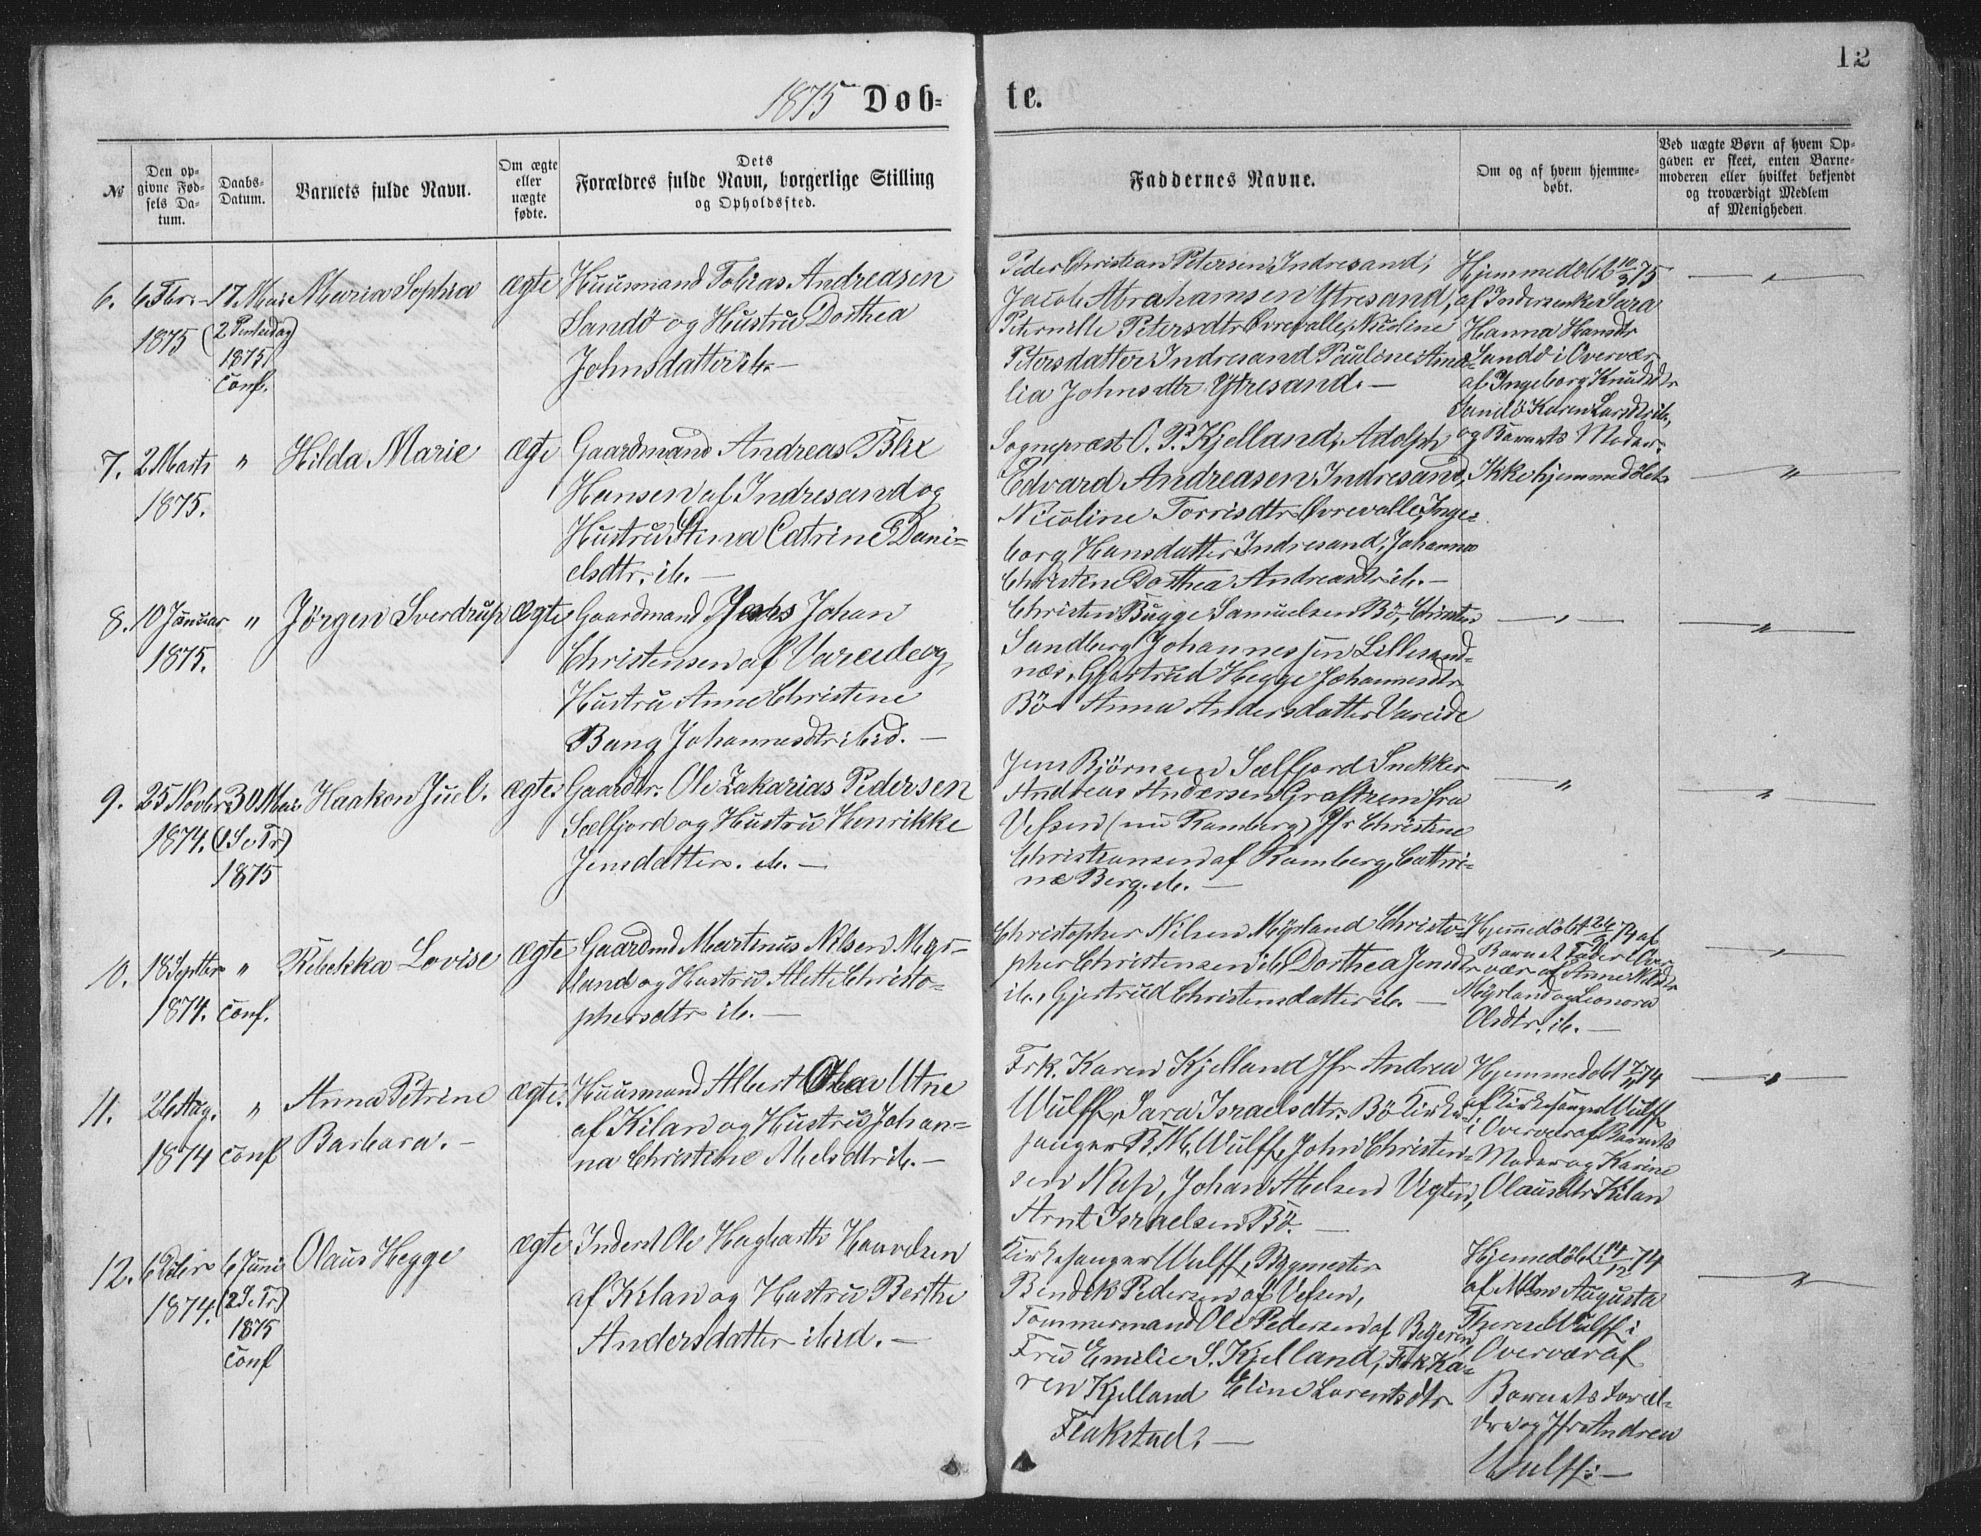 12
1875 Døb-
te.
№
Den op-
givne Fød-
sels Da-
tum.
Daabs-
Datum.
Barnets fulde Navn.
Om ægte
eller
uægte
fødte.
Dets
Forældres fulde Navn, borgerlige Stilling
og Opholdssted.
Faddernes Navne.
Om og af hvem hjemme-
døbt.
Ved uægte Børn af hvem Op-
gaven er skeet, enten Barne-
moderen eller hvilket bekjendt
og troværdigt Medlem
af Menigheden.
6.
6 Fbr.
1875
17. Mai
(2 Pintsedag)
1875.
conf.
Maria Sophia
ægte
Huusmand Tobias Andreasen
Sandö og Hustru Dorthea
Johnsdatter ib. —
Peder Christian Petersen Indresand,
Jacob Abrahamsen Ytresand,
Pernille Petersdtr Övrevalle, Nicoline
Petersdatter Indresand Pauline Ama-
lia Johnsdtr Ytresand. —
Hjemmedöbt 10/3 75
af Inderenke Sara
Hanna Hansdtr
Sandö i Overvær
af Ingeborg Knudsdtr
Sandö Karen Larsdtr ib.
og Barnets Moder.
— „ —
7.
2 Marts
1875.
"
Hilda Marie
ægte
Gaardmand Andreas Blix
Hansen af Indresand og
Hustru Stina Catrine Dani-
elsdtr. ib. —
Sognepræst O. P. Kjelland, Adolph
Edvard Andreasen Indresand,
Nicoline Torrisdtr Övrevalle, Inge-
borg Hansdatter Indresand, Johanna
Christine Dorthea Andreasdtr ib. —
Ikke hjemmedöbt
— " —
8.
10 Januar
1875.
"
Jörgen Sverdrup
ægte
Gaardmand Jens Johan
Christensen af Vareide og
Hustru Anne Christine
Bang Johannesdtr ibid. —
Christen Bugge Samuelsen Bö, Christen
Sundberg Johannesen Lillesand-
næs, Gjertrud Hegge Johannesdtr
Bö Anna Andersdatter Vareide
— „ —
— " —
9.
25 Novbr
1874.
30 Mai
(1 S. e Tr)
1875
Haakon Juel.
ægte
Gaardbr. Ole Zakarias Pedersen
Sælfjord og Hustru Henrikke
Jensdatter. ib. —
Jens Björnsen Sælfjord Snekker
Andreas Andersen Graftrem fra
Vefsen (nu Ramberg) Jfr Christine
Christiansen af Ramberg, Cathri-
ne Berg. ib. —
— " —
— " —
10.
18 Septbr
1874.
"
conf.
Rebekka Lovise
ægte
Gaardmd Martinus Nilsen Myr-
land og Hustru Alett Christo-
phersdtr ib. —
Christopher Nilsen Myrland Christo-
pher Christensen ib. Dorthea Jensdtr
ib., Gjertrud Christensdatter ib. —
Hjemmedöbt 26/9 74 af
Barnets Fader i Over-
vær af Anne Nilsdtr
Myrland og Leonora
Olsdtr. ib. —
— " —
11.
26 Aug.
1874
"
conf
Anna Petrine
Barbara. —
ægte
Huusmand Albert Olai Utne
af Kilan og Hustru Johan-
na Christine Abelsdtr ib. —
Frk. Karen Kjelland Jfr Andrea
Wulff, Sara Israelsdtr. Bö Kirke-
sanger B. M. Wulff, John Christen-
sen Nap, Johan Abelsen Vigten,
Arnt Israelsen Bö. —
Hjemmedöbt 7/11 74
af Kirkesanger Wulff
i Overvær af Barnets
Moder og Karine
Olausdtr Kilan
— " —
12.
6 Octbr
1874.
6 Juni
(2 S. e Tr)
1875
conf
Olaus Hegge
ægte
Inderst Ole Hagbarth Haavelsen
af Kilan og Hustru Berthe
Andersdatter ibid. —
Kirkesanger Wulff, Bygmester
Bendik Pedersen af Vefsen,
Tömmermand Ole Pedersen af Beijeren
Fru Emilie S. Kjelland, Frk Ka-
ren Kjelland Eline Lorentsdtr
Flakstad. —
Hjemmedöbt 14/12 74
af Mdm Augusta
Therese Wulff i
Overvær af
Barnets Foræl-
dre og Jfr Andrea
Wulff. —
— " —